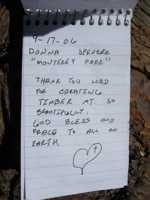 4-17-06
DONNA SPENCER
"MONTEREY PARK"
THANK YOU LORD
FOR CREATING
TIMBER AT SO
BEAUTIFULLY.
GOD BLESS AND
PEACE TO ALL ON
EARTH